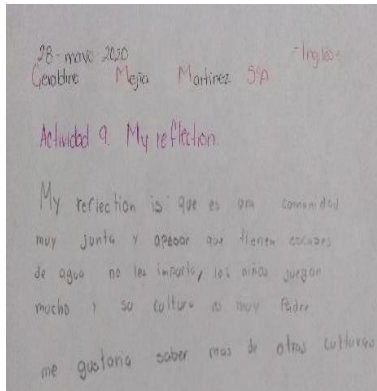 28-mayo-2020
-Inglés-
Geraldine Mejia Martinez 5ºA
Actividad 9. My reflection.
My reflection is: que es una comunidad
muy junta y apesar que tienen escases
de agua no les importa, los niños juegan
mucho y su cultura es muy Padre
me gustaria saber mas de otras culturas